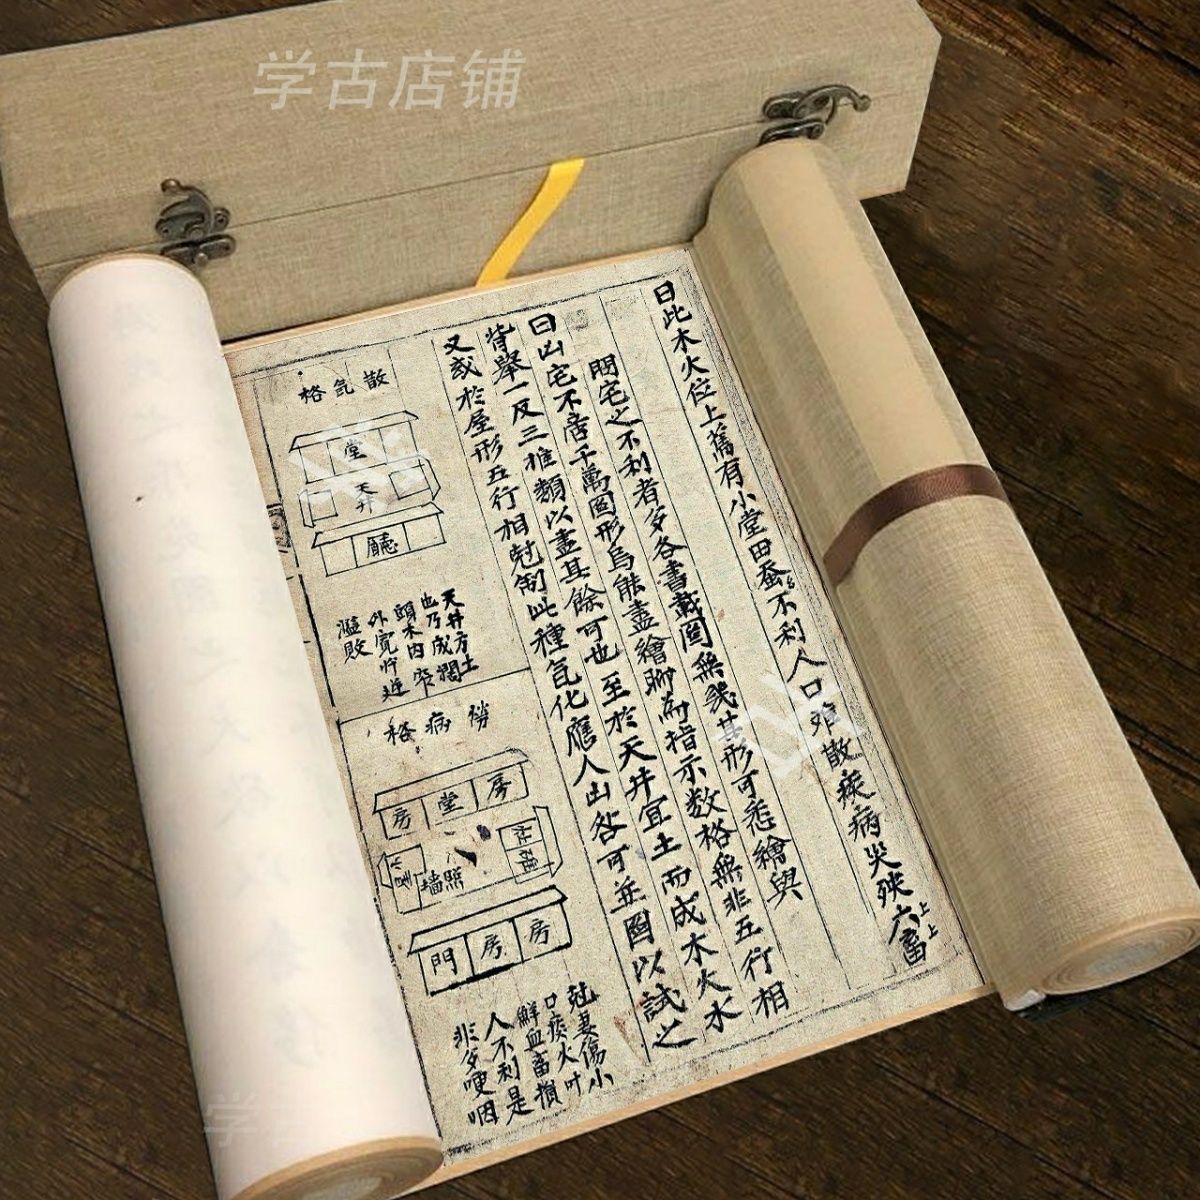 学古店铺
曰此木火位上舊有小堂田蚕不利人口难散疾病災殃六畜
上
上
問宅之不利者多各書載圖無幾其形可悉繪與
曰凶宅不啻千萬圖形烏能盡繪聊為指示数格無非五行相
背舉一反三推類以盡其餘可也至於天井宜土而成木火水
又或於屋形五行相尅制此種氣化應人凶咎可並圖以試之
散氣格
堂
天井
廳
天井方土
也乃成濶
頭木内窄
外寬忤逆
濫敗
病格
房 堂 房
照墙
門 房 房
尅妻傷小
口瘓火叶
鮮血畜損
人不利是
非多哽咽